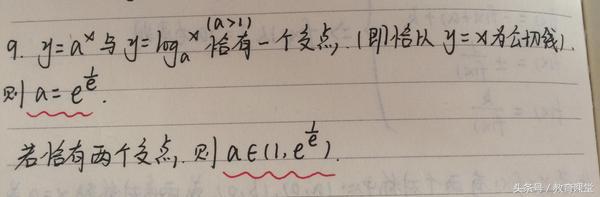 9. y=a^x 与 y=log_a x (a>1) 恰有一个交点, (即恰以 y=x 为公切线).
则 a=e^{1/e}.
若恰有两个交点, 则 a∈(1, e^{1/e}).
头条号 / 教育课堂